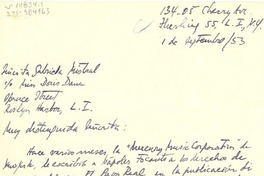 134-25 Cherry Ave.
Flushing 55, L.I., N.Y.
1 de septiembre/53
Señorita Gabriela Mistral
c/o Miss Doris Dana
Spruce Street
Roslyn Harbor, L.I.
Muy distinguida Señorita:
Hace varios meses, la "Mercury Music Corporation" de
le escribió a Nápoles tocante a los derechos de
Pavo Real en la publicación di